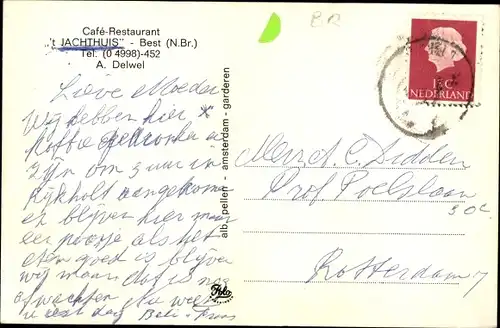 Café-Restaurant
"'t JACHTHUIS" - Best (N.Br.)
Tel. (0 4998)-452
A. Delwel
Lieve Moeder
Wij hebben hier
Koffie gedronken en
zijn om 3 uur in
Rijkholt aangekomen
en blijven hier maar
een poosje als het
eten goed is blijven
wij maar dat is nog
afwachten
Beli - Frans
alb. pellen - amsterdam - garderen
BR
NEDERLAND
C. Didden
Prof. Poelslaan
30C
Rotterdam 7